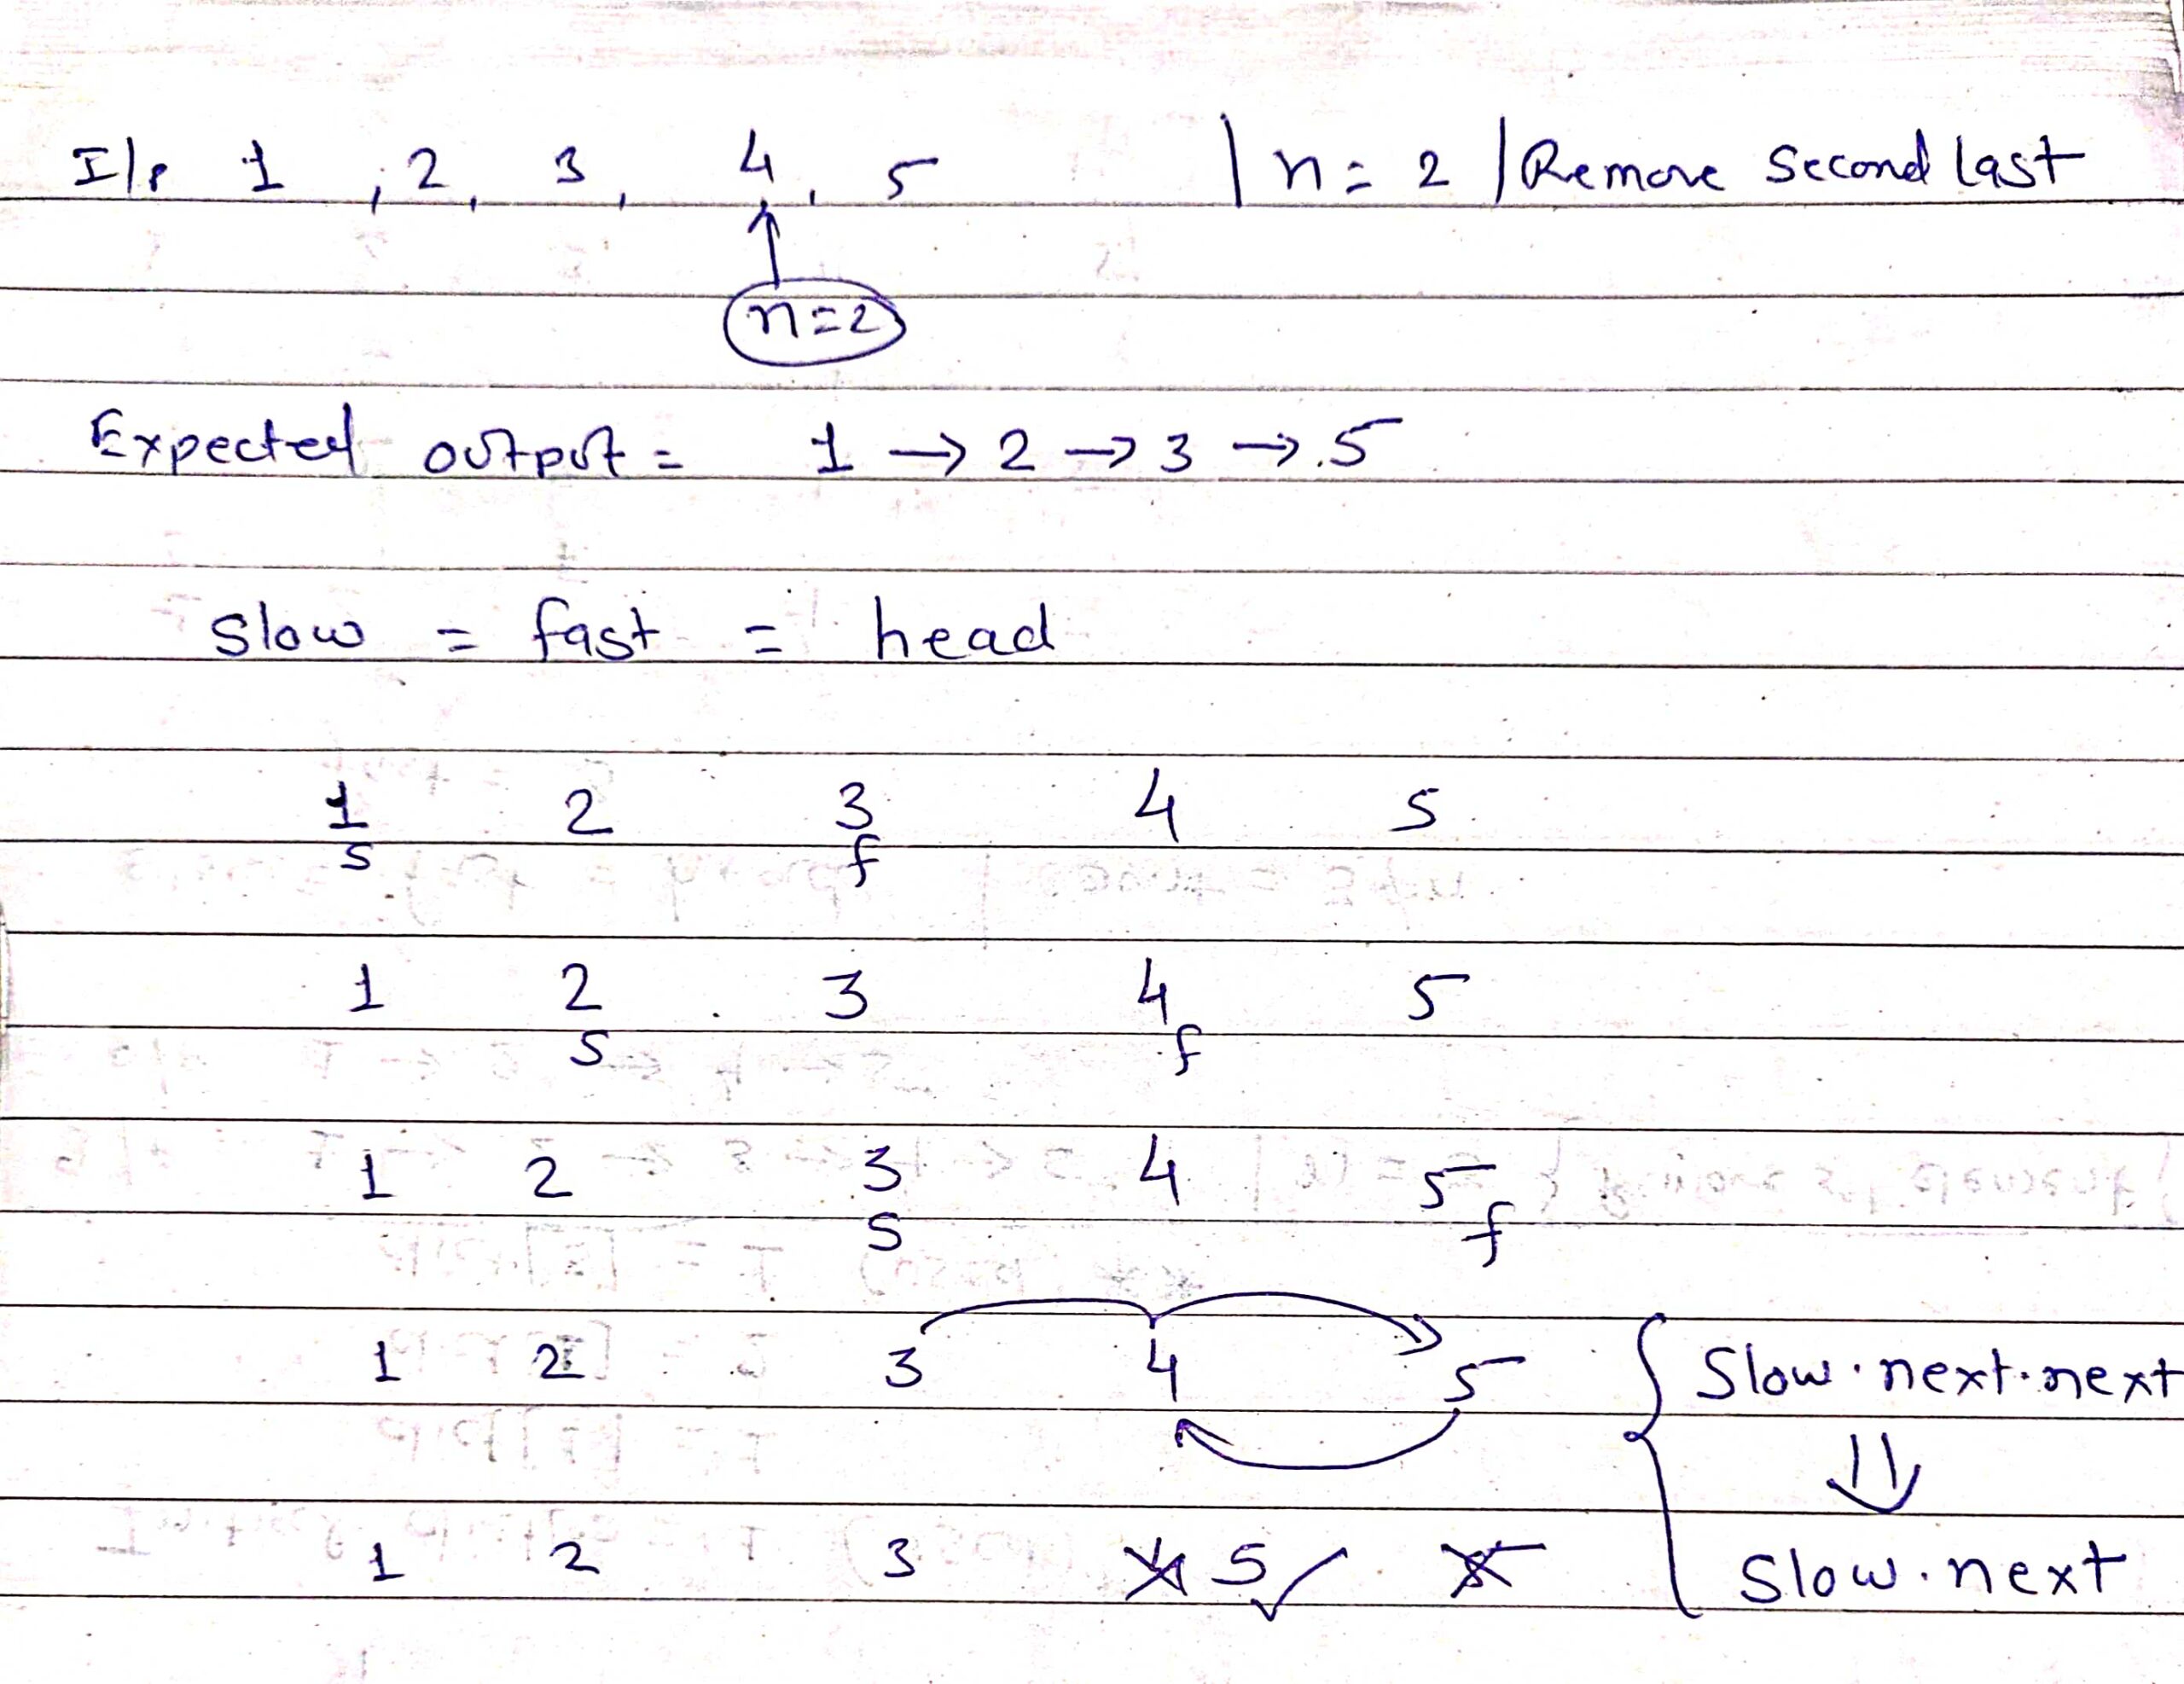 I/p 1 , 2, 3, 4, 5 | n = 2 | Remove Second last
n=2
Expected output = 1 → 2 → 3 → 5
Slow = fast = head
1 2 3 4 5
s f
1 2 3 4 5
s f
1 2 3 4 5
s f
1 2 3 4 5 { Slow.next.next
⇓
1 2 3 4 5 ✓ 5 Slow.next